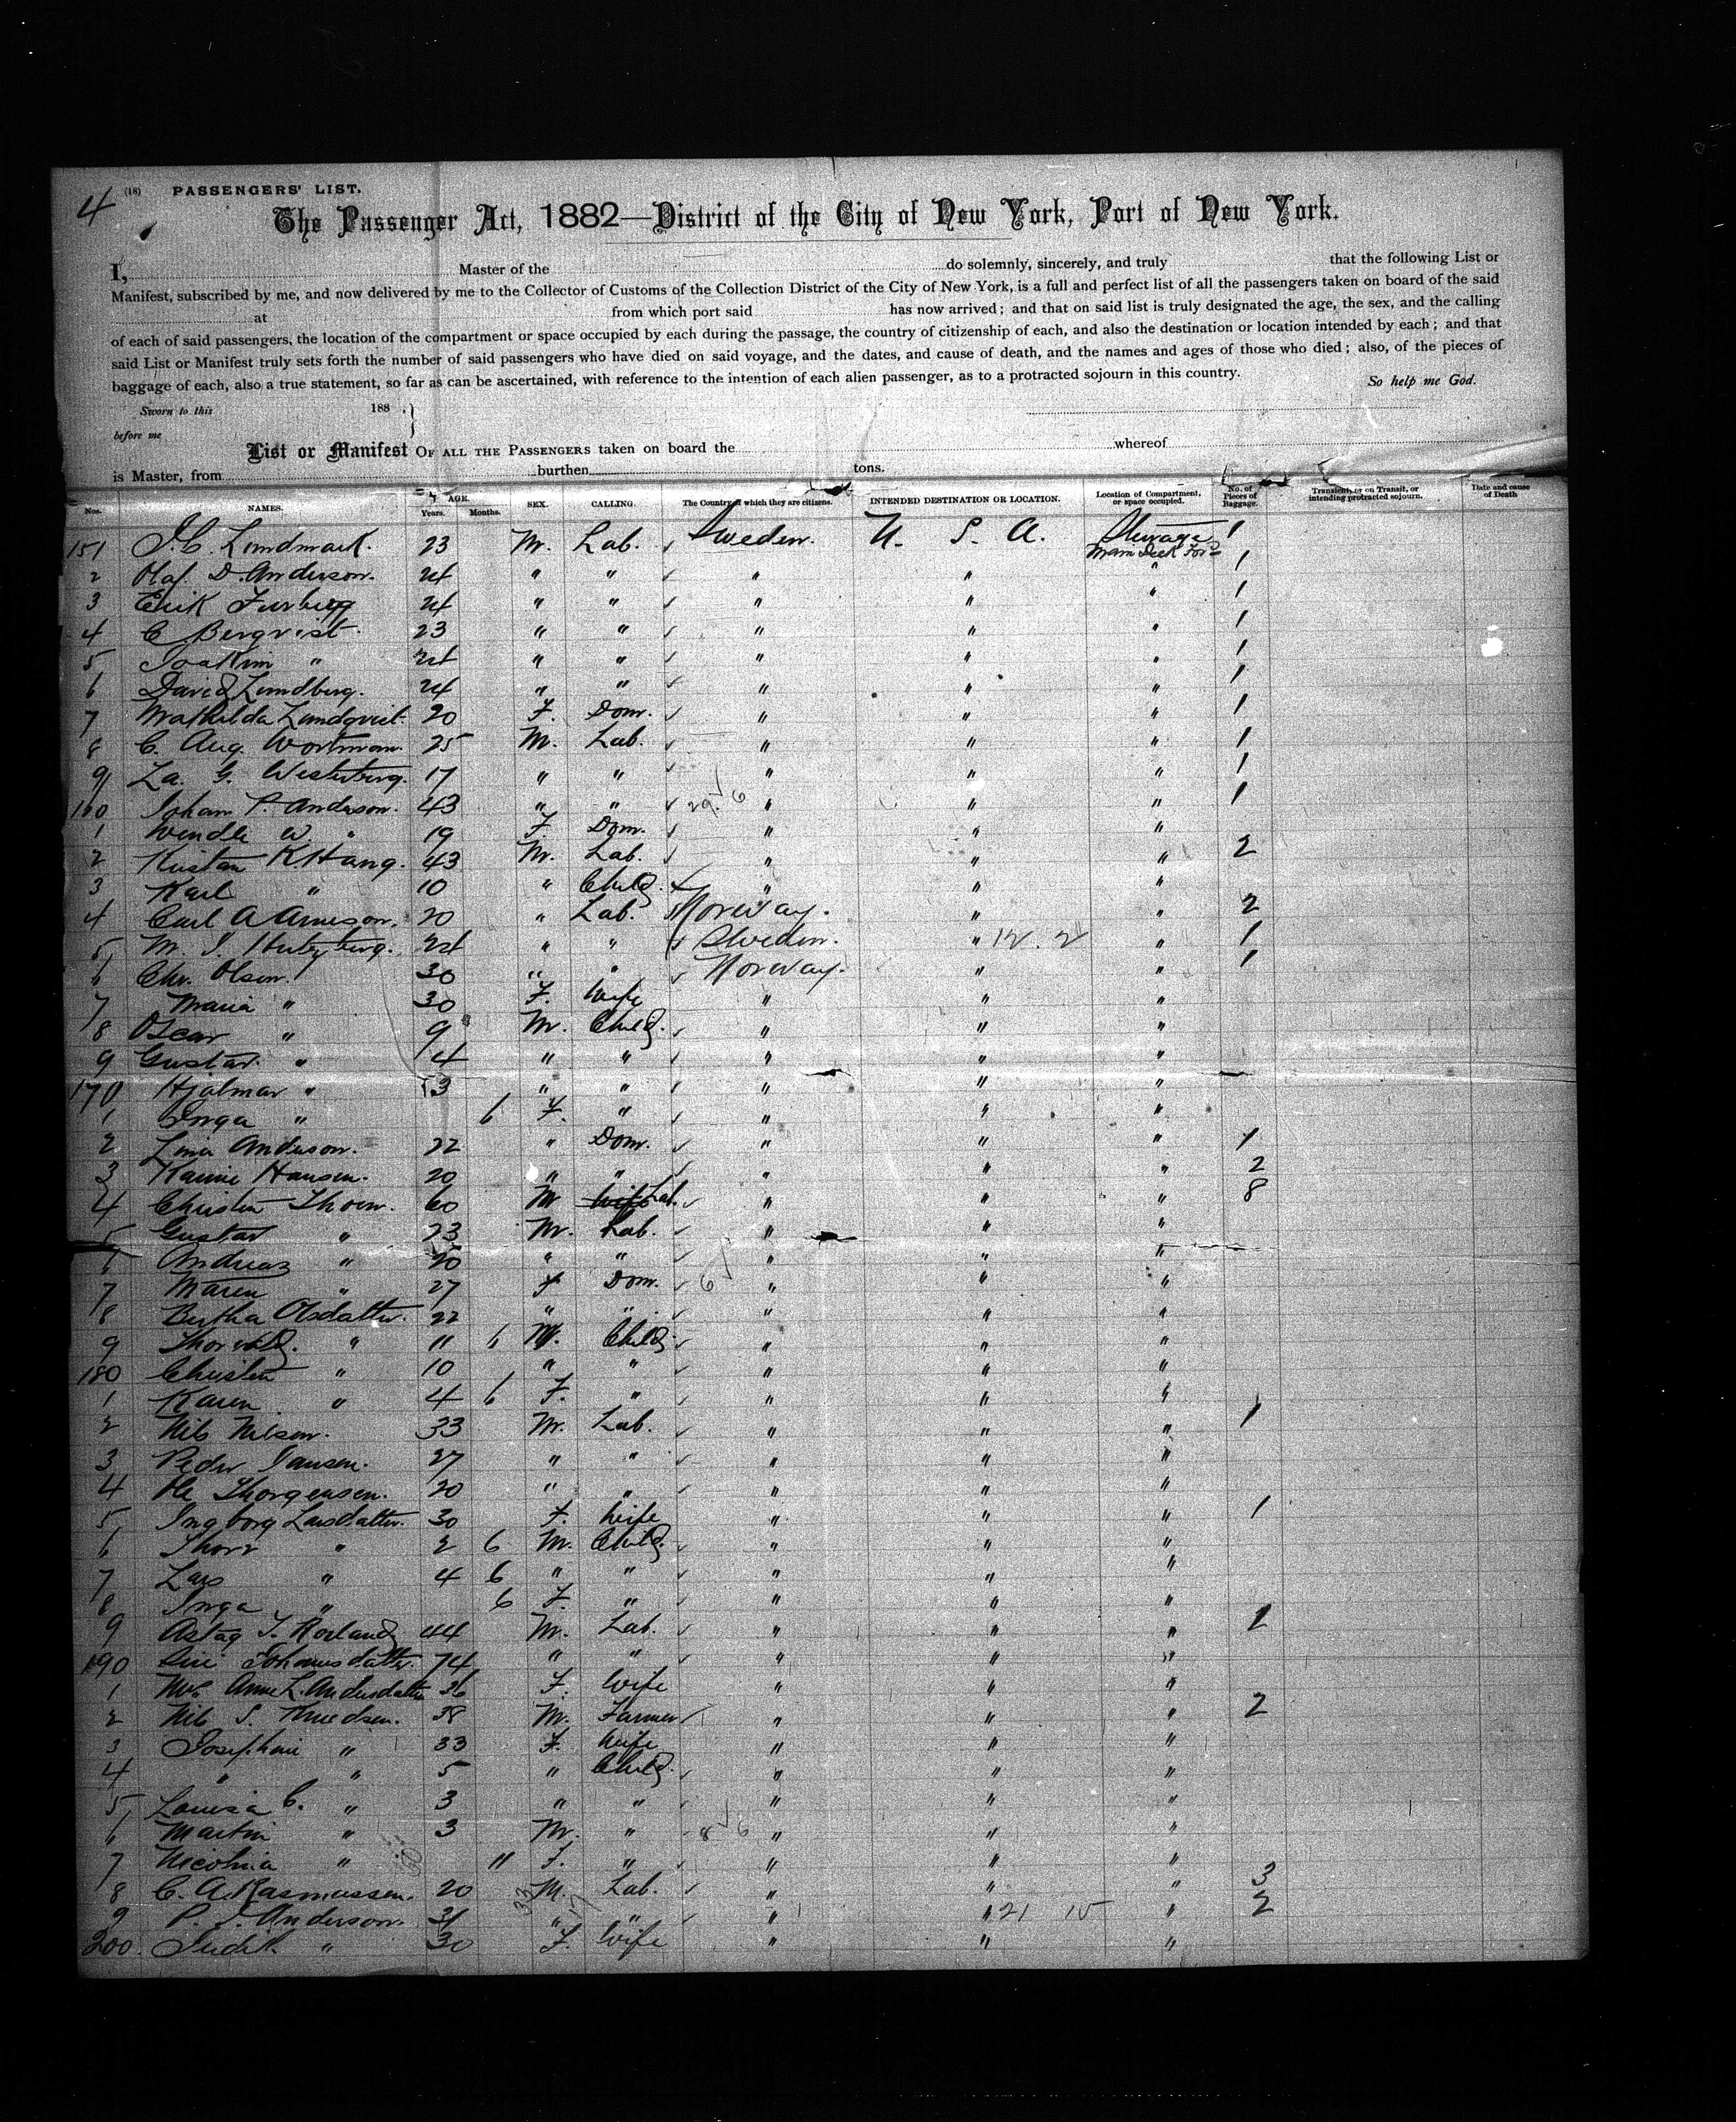 4 (18) PASSENGERS' LIST.
The Passenger Act, 1882—District of the City of New York, Port of New York.
I, Master of the do solemnly, sincerely, and truly that the following List or
Manifest, subscribed by me, and now delivered by me to the Collector of Customs of the Collection District of the City of New York, is a full and perfect list of all the passengers taken on board of the said
at from which port said has now arrived; and that on said list is truly designated the age, the sex, and the calling
of each of said passengers, the location of the compartment or space occupied by each during the passage, the country of citizenship of each, and also the destination or location intended by each; and that
said List or Manifest truly sets forth the number of said passengers who have died on said voyage, and the dates, and cause of death, and the names and ages of those who died; also, of the pieces of
baggage of each, also a true statement, so far as can be ascertained, with reference to the intention of each alien passenger, as to a protracted sojourn in this country. So help me God.
Sworn to this 188 .}
before me
List or Manifest OF ALL THE PASSENGERS taken on board the whereof
is Master, from burthen tons.
Nos. NAMES. AGE. Years. Months. SEX. CALLING. The Country of which they are citizens. INTENDED DESTINATION OR LOCATION. Location of Compartment, or space occupied. No. of Pieces of Baggage. Transient, or on Transit, or intending protracted sojourn. Date and cause of Death
151 J. C. Lundmark. 23 M. Lab. Sweden. U. S. A. Steerage Main Deck For'd 1
2 Olaf D. Anderson. 24 " " " " " 1
3 Erik Furberg 24 " " " " " 1
4 C Bergvist. 23 " " " " " 1
5 Joakim " 24 " " " " " 1
6 David Lundberg. 24 " " " " " 1
7 Mathilda Lundqvist. 20 F. Dom. " " " 1
8 C. Aug. Wortman. 25 M. Lab. " " " 1
9 La. G. Westerberg. 17 " " " " " 1
160 Johan P. Anderson. 43 " " 29 6 " " " 1
1 W " 19 F. Dom. " " "
2 Kristan K. Haug. 43 M. Lab. " " " 2
3 Karl " 10 " Child. " " "
4 Carl A Arneson. 20 " Lab. Norway. " " 2
5 M. J. 24 " " Sweden. " 12. 2 " 1
6 Chr. Olsen. 30 " " Norway. " " 1
7 Maria " 30 F. Wife " " "
8 Oscar " 9 M. Child. " " "
9 Gustav. " 4 " " " " "
170 Hjalmar " 3 " " " " "
1 Inga " 6 F. " " " "
2 Lina Anderson. 22 " Dom. " " " 1
3 Hansen. 20 " " " " " 2
4 Christen Thoen. 60 M Lab. " " " 8
5 Gustav " 23 M. Lab. " " "
6 Andreas " 20 " " " " "
7 Maren " 27 F Dom. 6 " " "
8 Bertha Olsdatter. 22 " " " " "
9 Thorvald. " 11 6 M. Child. " " "
180 Christen " 10 " " " " "
1 Karen " 4 6 F. " " " "
2 Nils Nilsen. 33 M. Lab. " " " 1
3 Peder Jansen. 27 " " " " "
4 Ole Thorgensen. 20 " " " " "
5 Ingborg Larsdatter. 30 F. Wife " " " 1
6 Thorr " 2 6 M. Child. " " "
7 Lars " 4 6 " " " " "
8 Inga " 6 F. " " " "
9 Astag T. Rorland 44 M. Lab. " " " 1
190 Johannesdatter. 74 " " " " "
1 Mrs. Anne L. Andersdatter 36 F. Wife " " "
2 Nils S. Knudsen. 38 M. Farmer " " " 2
3 Josephine " 33 F. Wife " " "
4 " " 5 " Child. " " "
5 Louisa C. " 3 " " " " "
6 Martin " 3 M. " 8 6 " " "
7 Nicolina " 11 F. " " " "
8 C. A. Rasmussen. 20 M. Lab. " " " 3
9 P. J. Anderson. 31 " " " " 21 15 " 2
200 Judit. " 30 F. Wife " " "